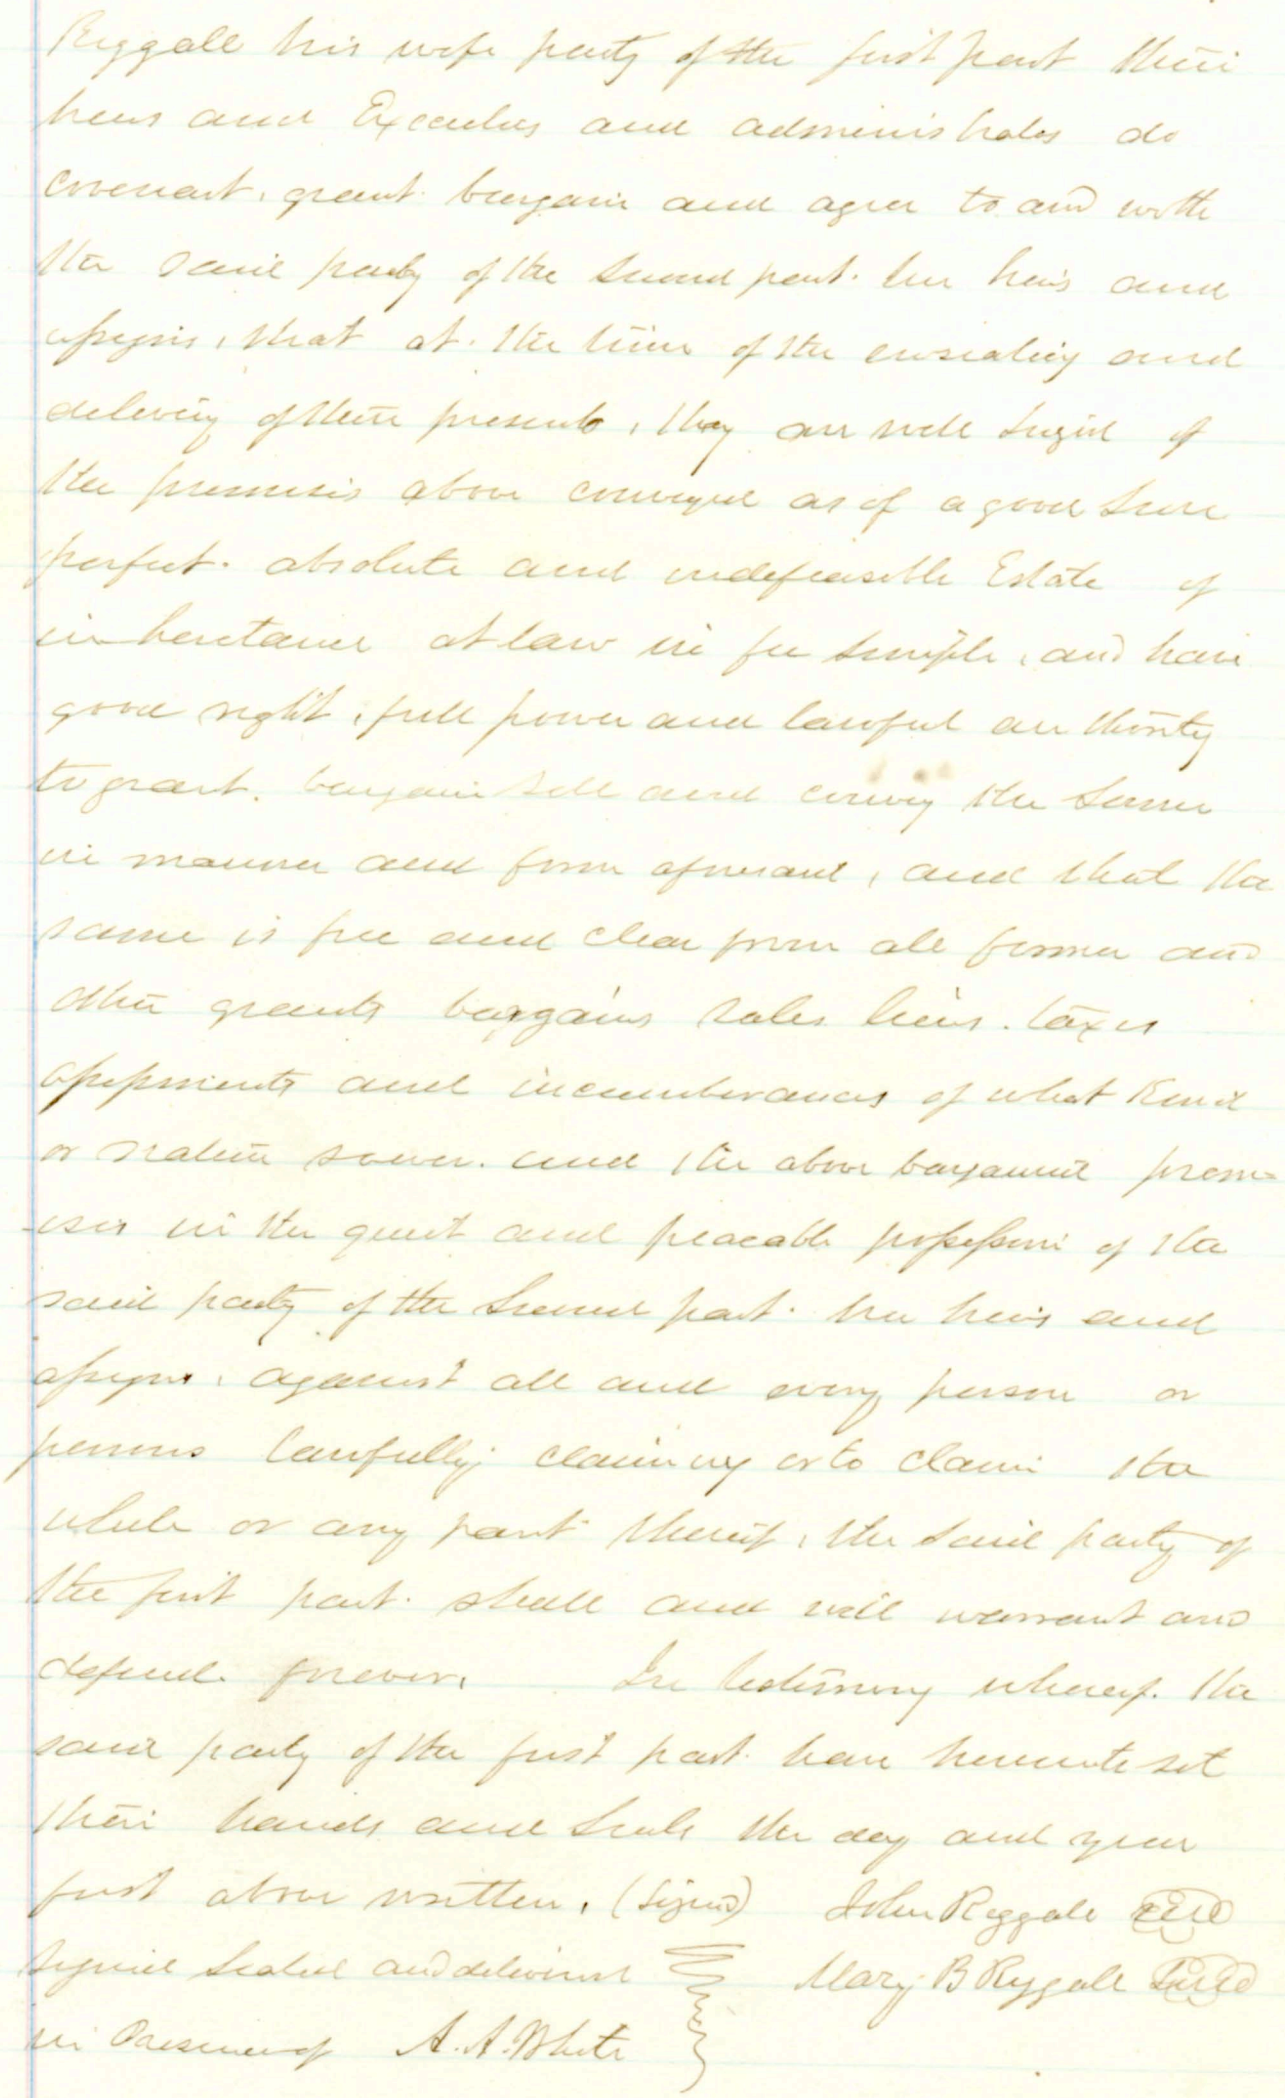 Riggall his wife party of the first part their
heirs and Executors and administrators do
covenant, grant bargain and agree to and with
the said party of the second part. her heirs and
assigns, that at the time of the ensealing and
delivery of these presents, they are well seized of
the premises above conveyed as of a good sure
perfect. absolute and indefeasible Estate of
inheritance at law in fee simple, and have
good right, full power and lawful authority
to grant. bargain sell and convey the same
in manner and form aforesaid, and that the
same is free and clear from all former and
other grants bargains sales liens. taxes
assessments and incumberances of what kind
or nature soever. and the above bargained prem=
-ises in the quiet and peacable possession of the
said party of the second part. her heirs and
assigns, against all and every person or
persons lawfully claiming or to claim the
whole or any part thereof, the said party of
the first part. shall and will warrant and
defend. forever. In testimony whereof. the
said party of the first part. have hereunto set
their hands and seals the day and year
first above written. (Signed) John Riggall seal
signed sealed and delivered Mary B Riggall seal
in Presence of A. A. White